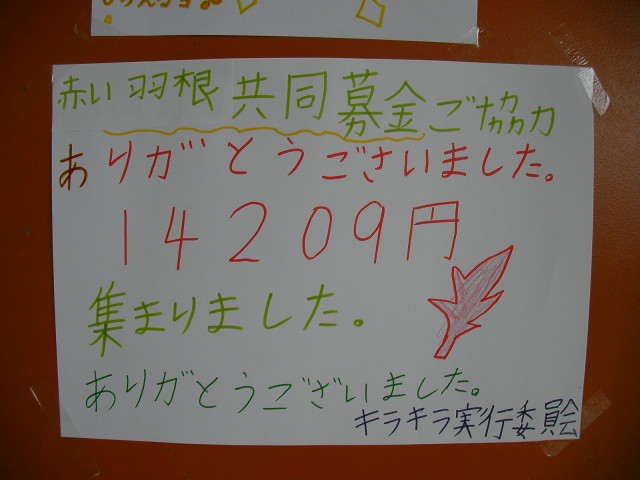 赤い羽根共同募金ご協力
ありがとうございました。
14209円
集まりました。
ありがとうございました。
キラキラ実行委員会